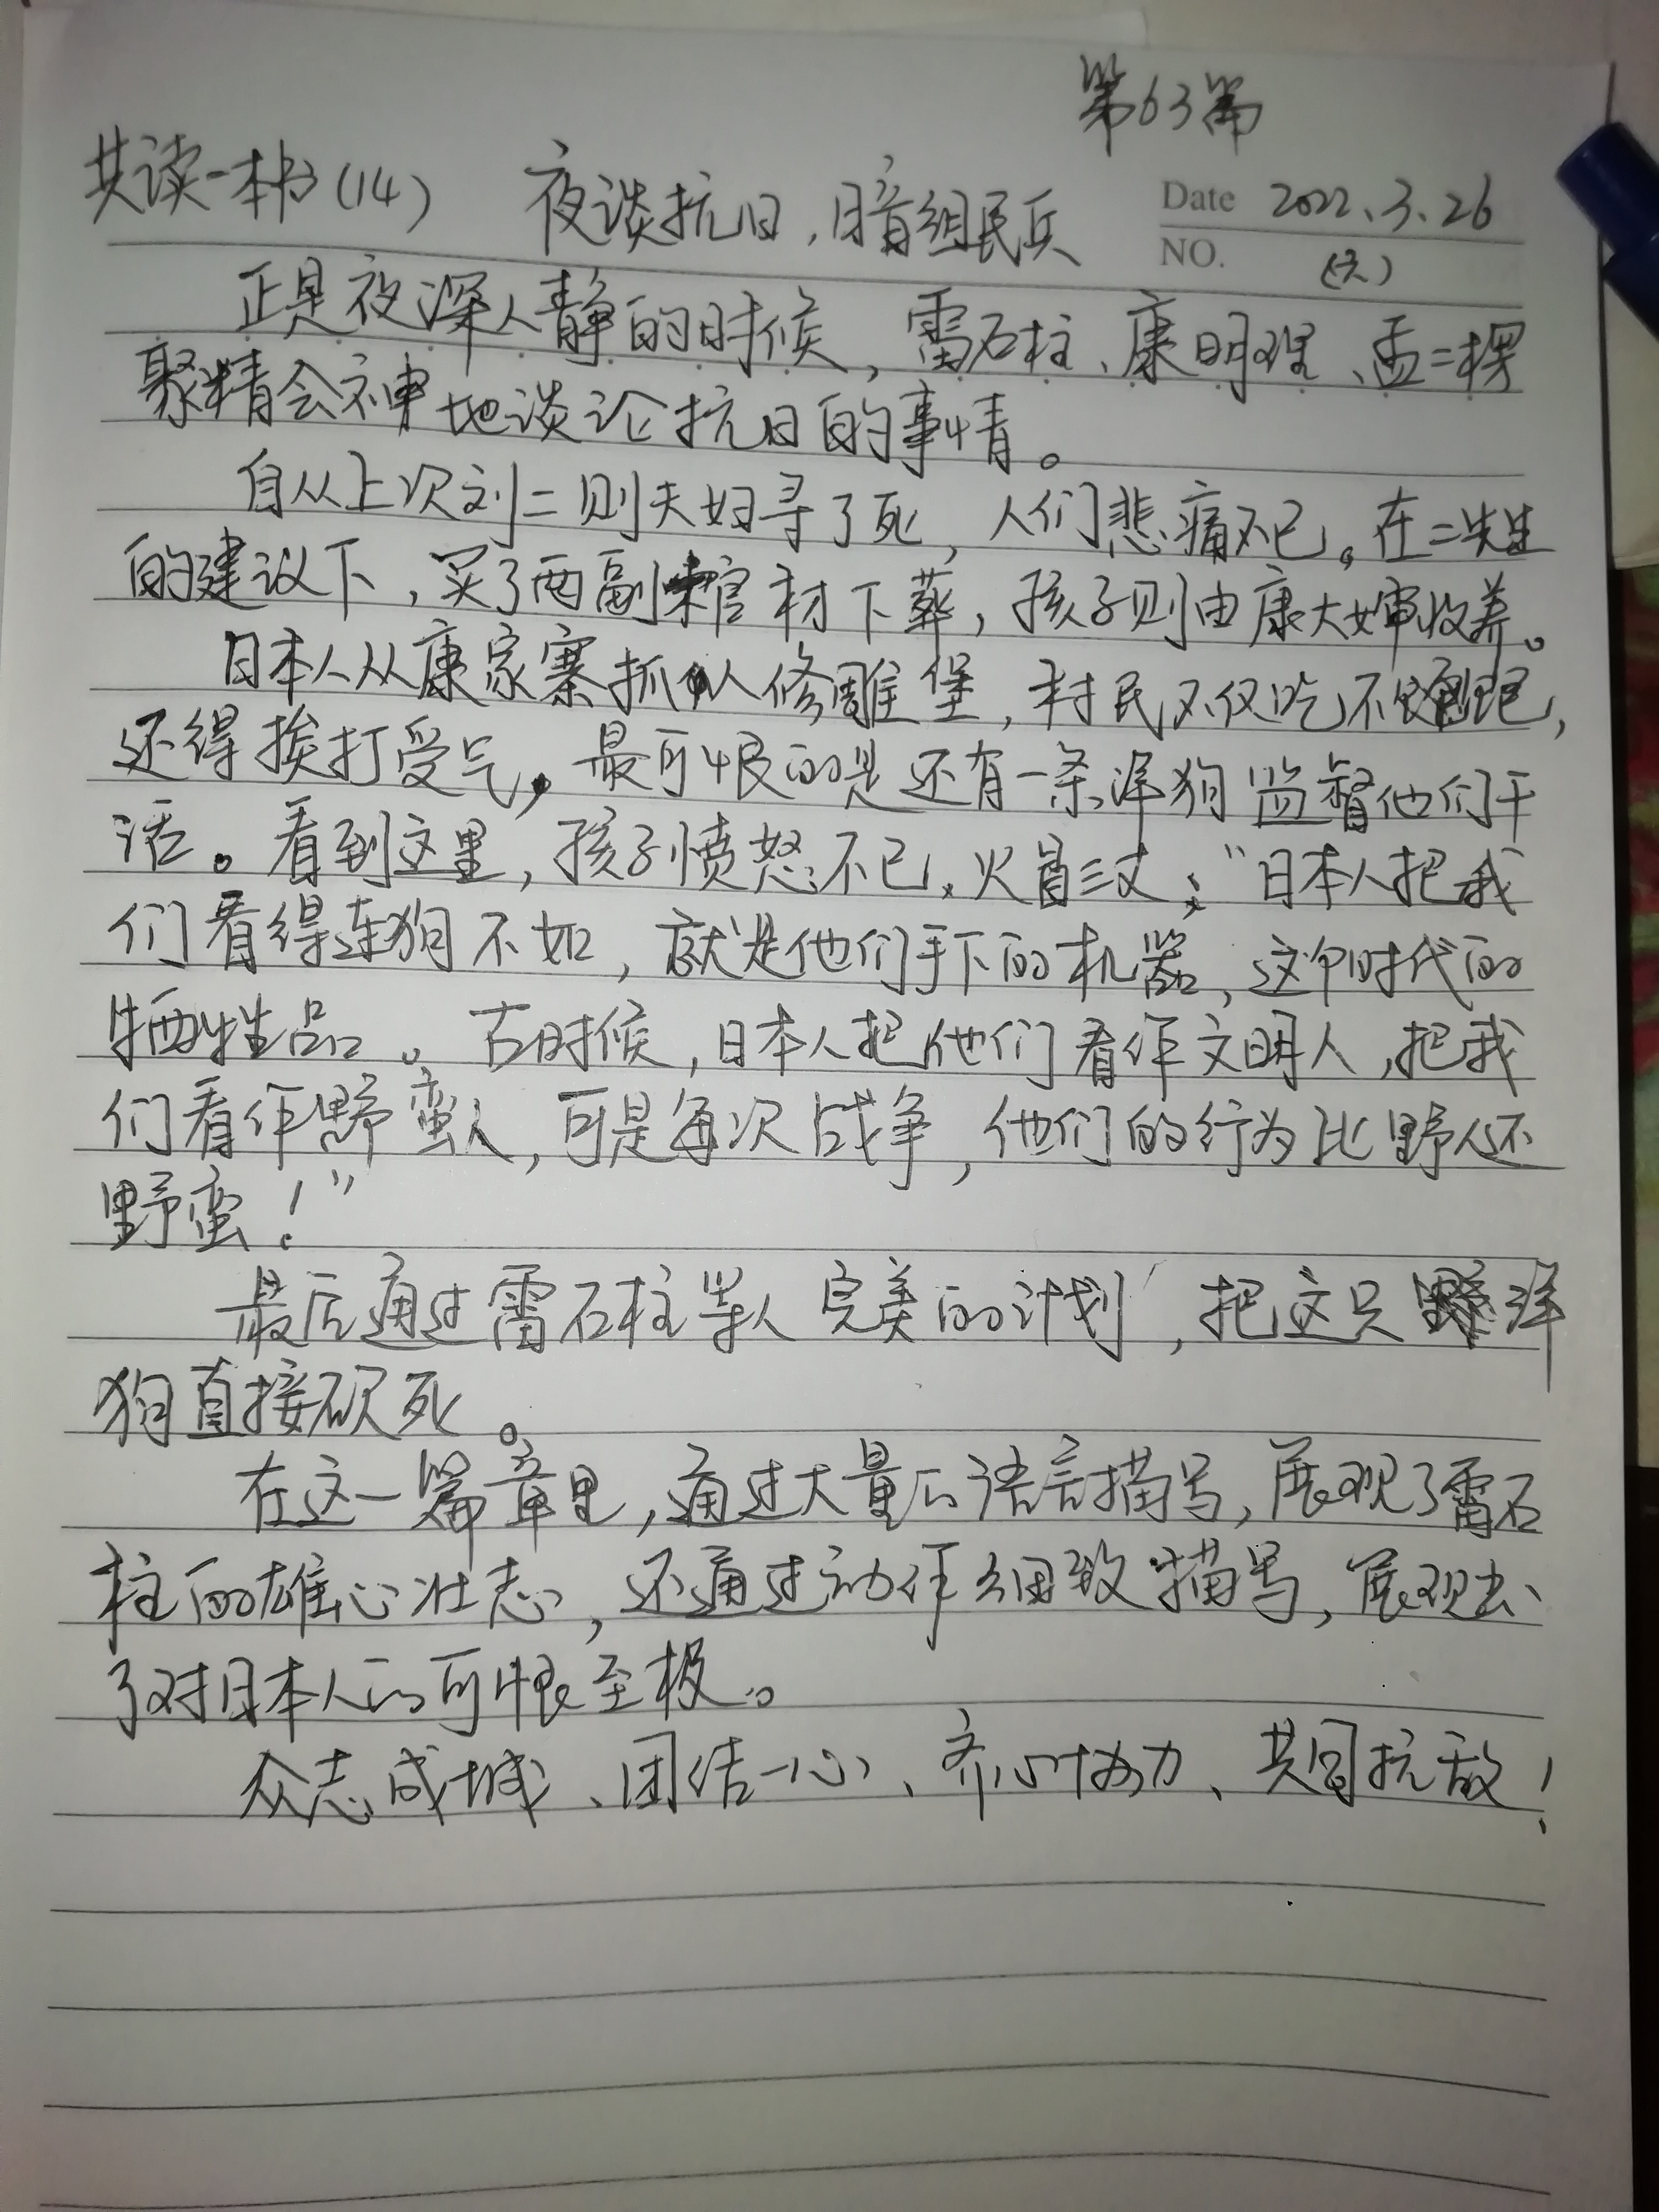 第63篇
共读一本书(14) 夜谈抗日,暗组民兵 Date 2022.3.26
NO. (六)
正是夜深人静的时候,雷石柱、康明理、孟二楞
聚精会神地谈论抗日的事情。
自从上次刘二则夫妇寻了死,人们悲痛不已。在二先生
的建议下,买了两副棺材下葬,孩子则由康大婶收养。
日本人从康家寨抓人修雕堡,村民不仅吃不饱,
还得挨打受气,最可恨的是还有一条洋狗监督他们干
活。看到这里,孩子愤怒不已,火冒三丈:“日本人把我
们看得连狗不如,就是他们手下的机器,这个时代的
牺牲品。古时候,日本人把他们看作文明人,把我
们看作野蛮人,可是每次战争,他们的行为比野人还
野蛮!”
最后通过雷石柱等人完美的计划,把这只洋
狗直接砍死。
在这一篇章里,通过大量的语言描写,展现了雷石
柱的雄心壮志,还通过动作细致描写,展现出
了对日本人的可恨至极。
众志成城、团结一心、齐心协力、共同抗敌!